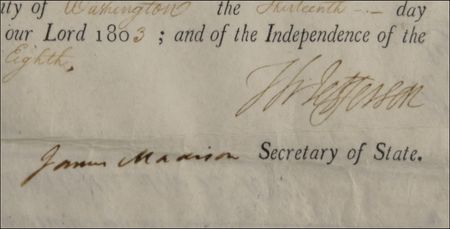 ity of Washington the Thirteenth day
our Lord 1803; and of the Independence of the
Eighth.
Th Jefferson
James Madison Secretary of State.